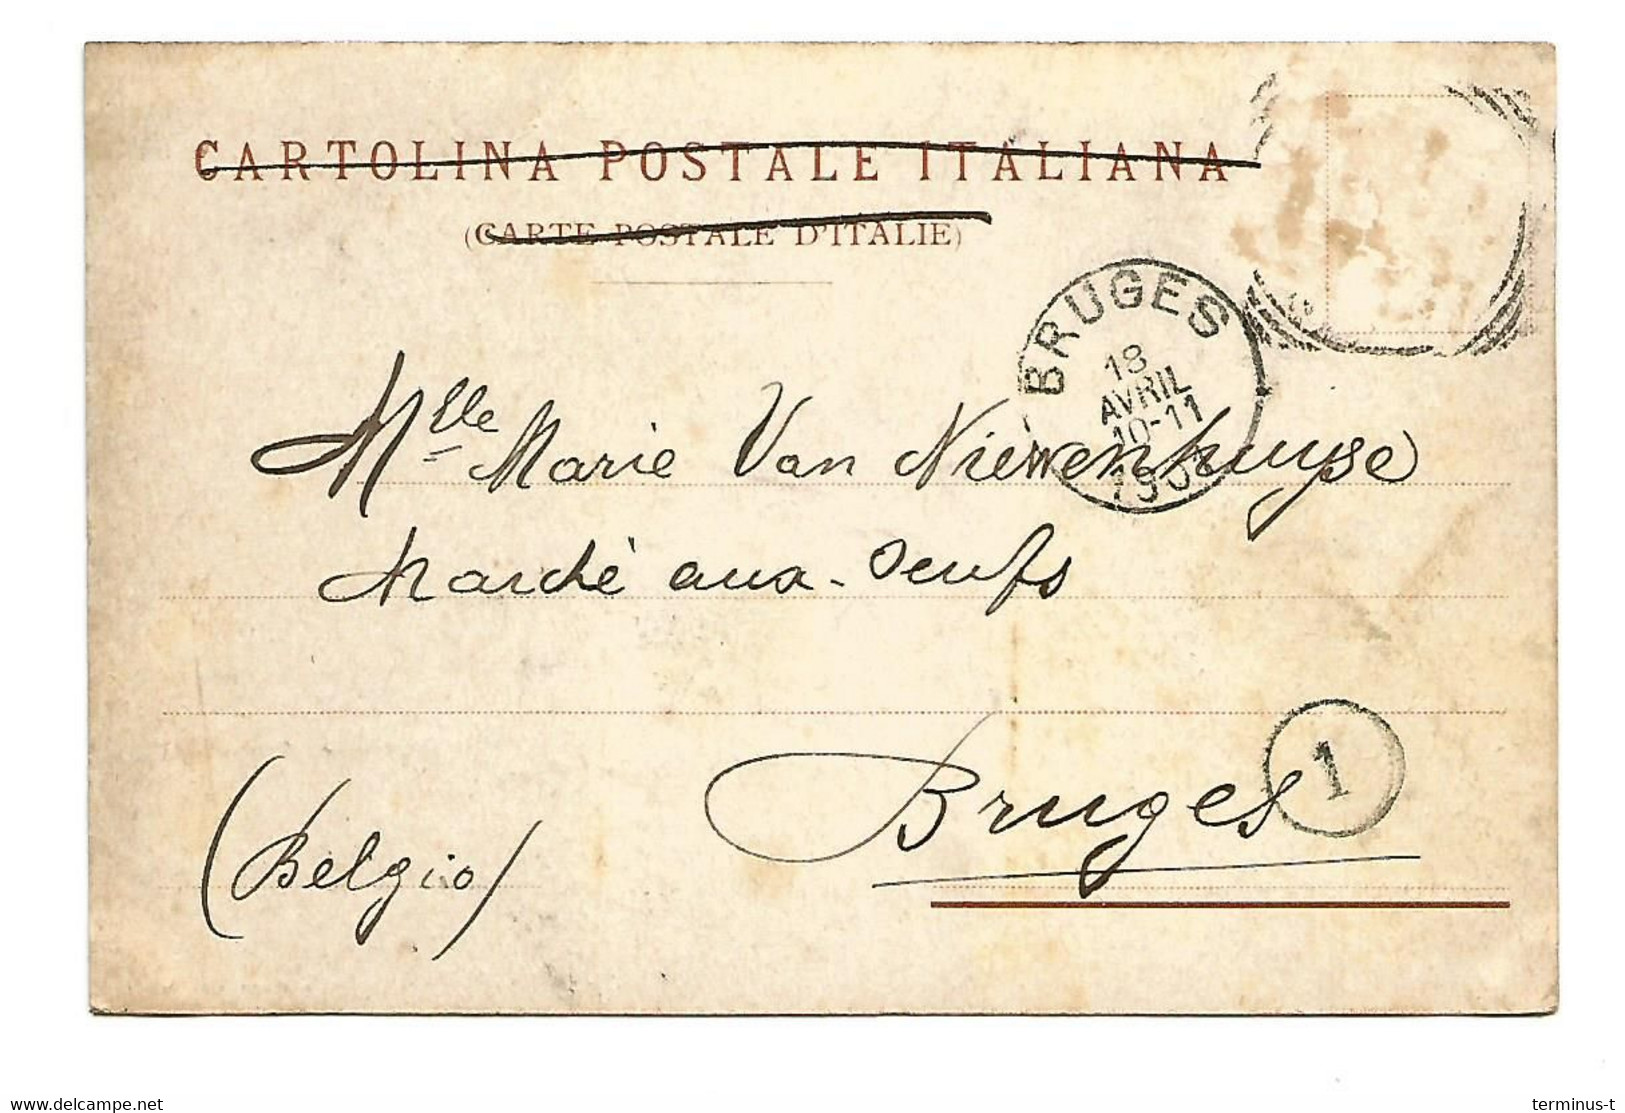 CARTOLINA POSTALE ITALIANA
(CARTE POSTALE D'ITALIE)
BRUGES
18
AVRIL
10-11
Mlle Marie Van Nieuwenhuyse
Marché aux Oeufs
Bruges
1
(Belgio)
delcampe.net
terminus-t